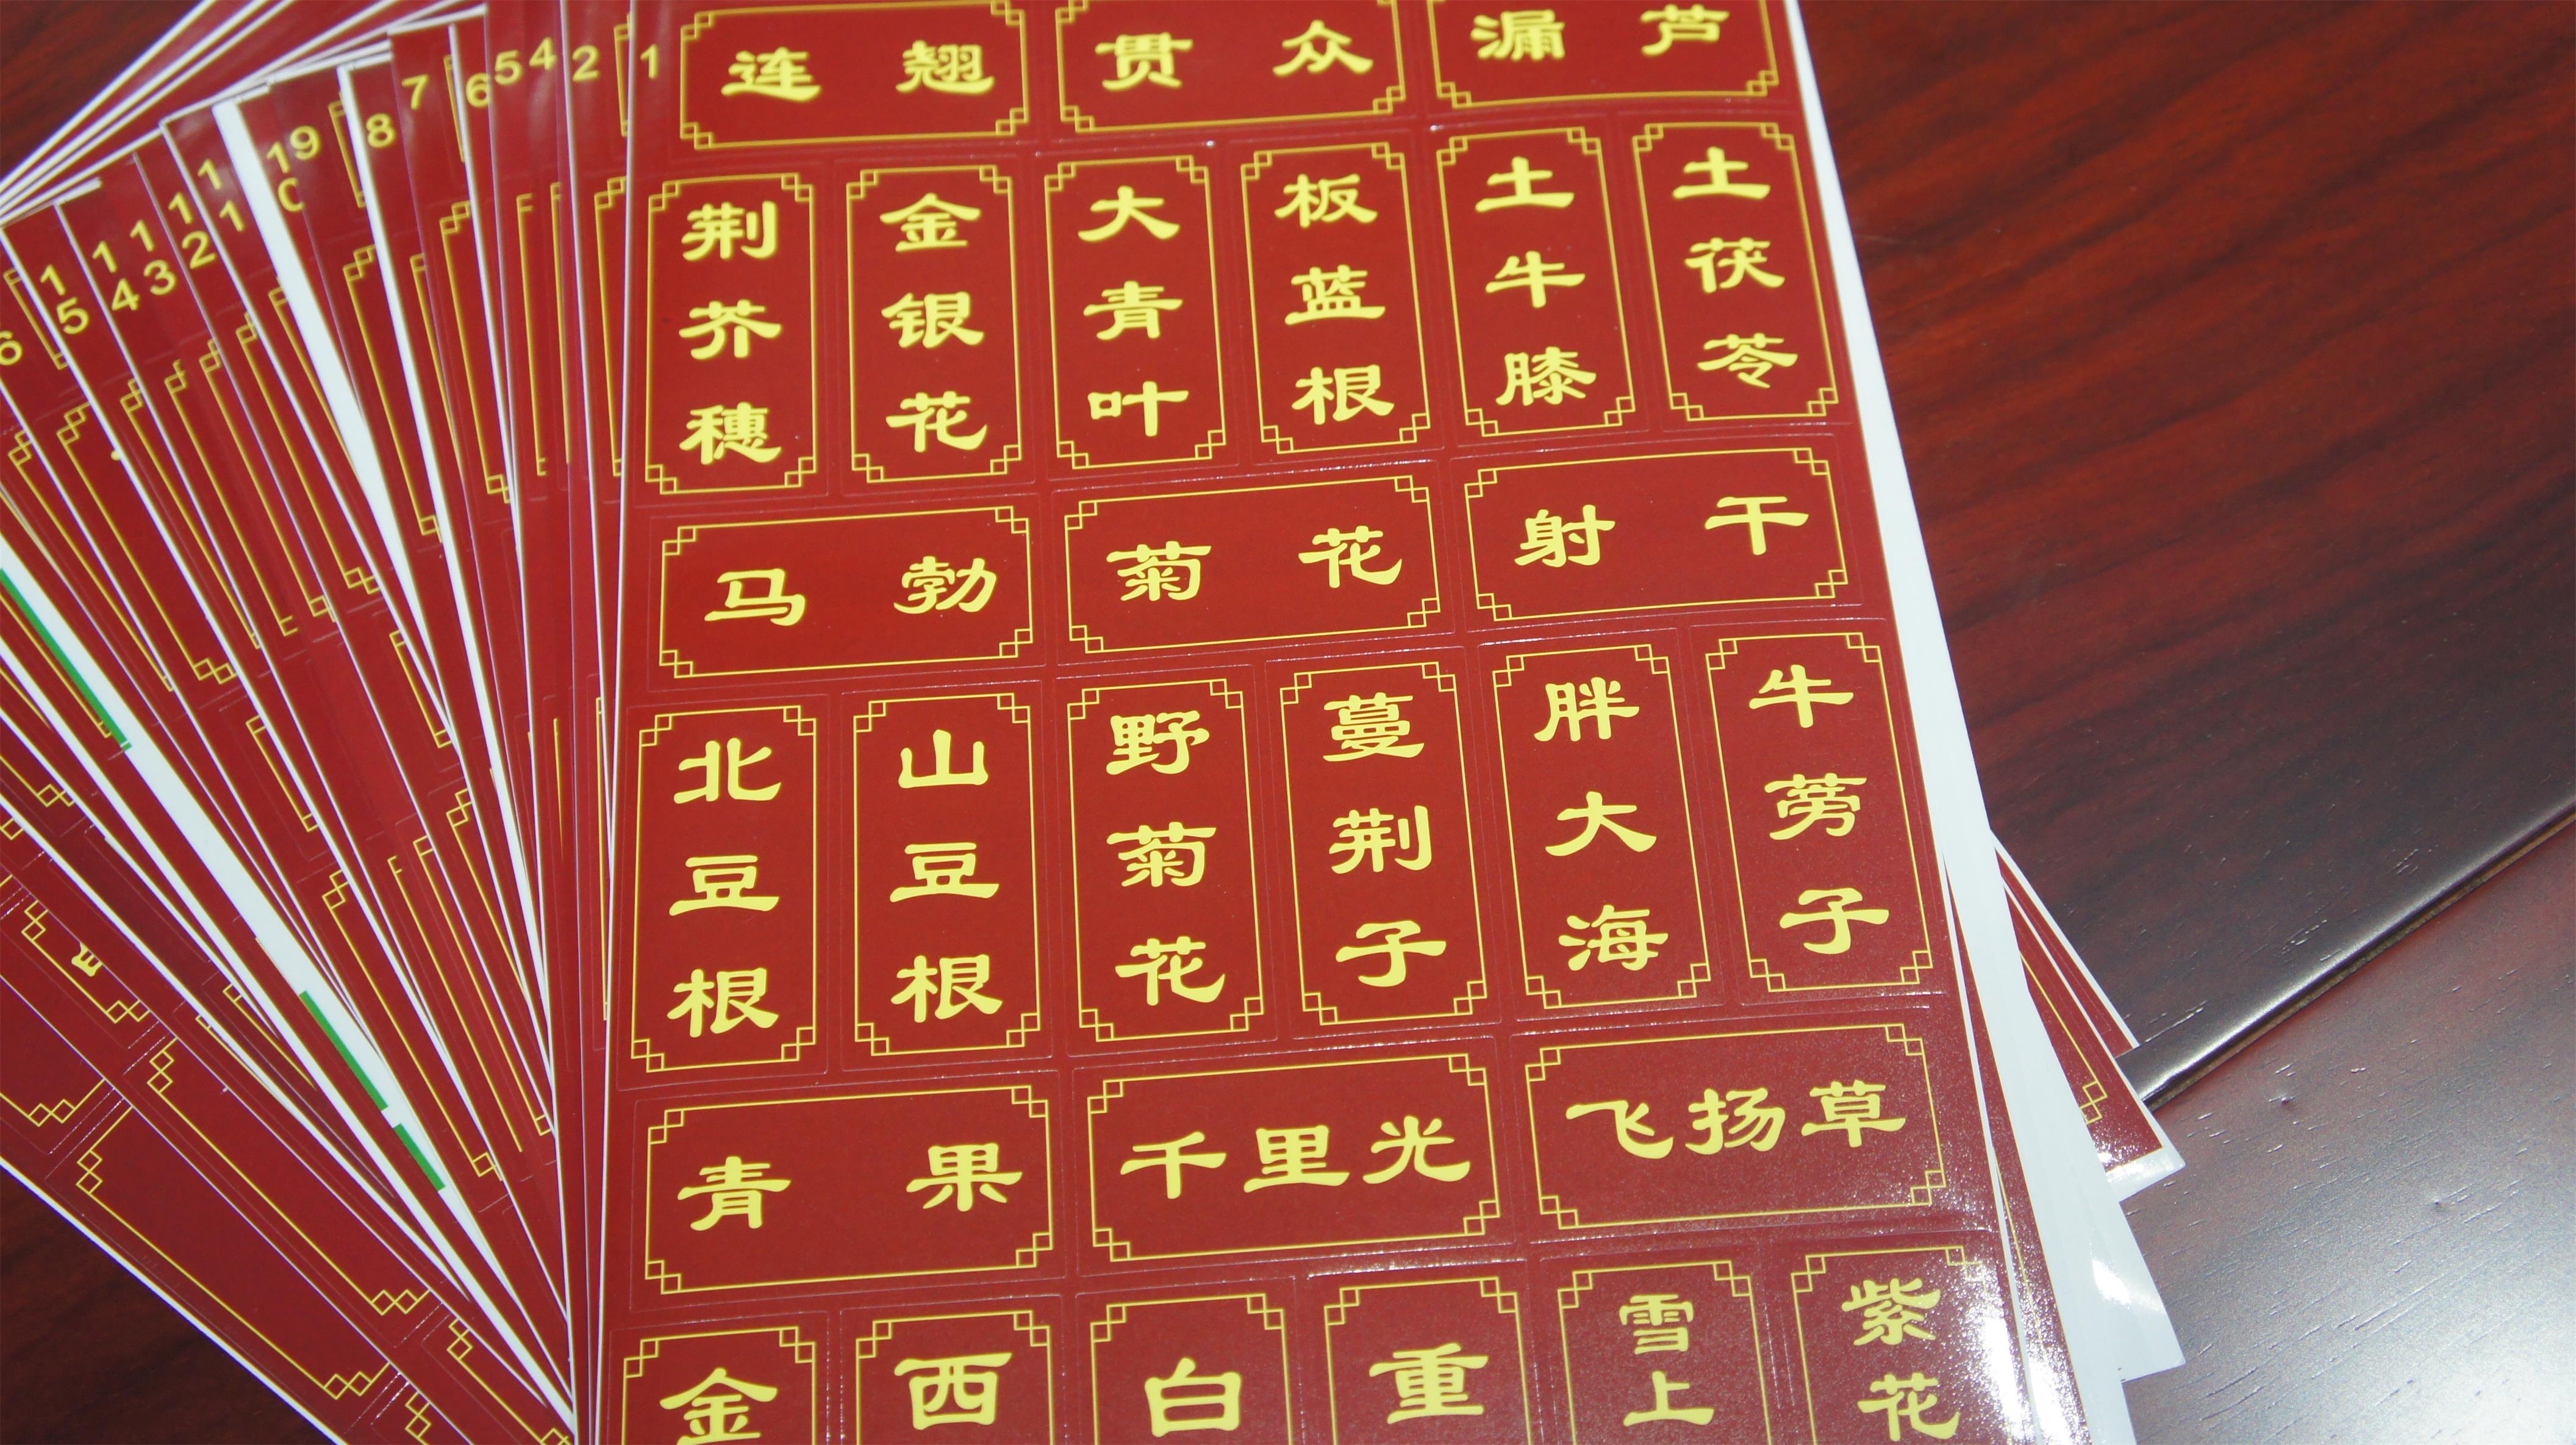 连翘
贯众
漏芦
荆芥穗
金银花
大青叶
板蓝根
土牛膝
土茯苓
马勃
菊花
射干
北豆根
山豆根
野菊花
蔓荆子
胖大海
牛蒡子
青果
千里光
飞扬草
金
西
白
重
雪上
紫花
1
2
4
5
6
7
8
9
10
11
12
13
14
15
6